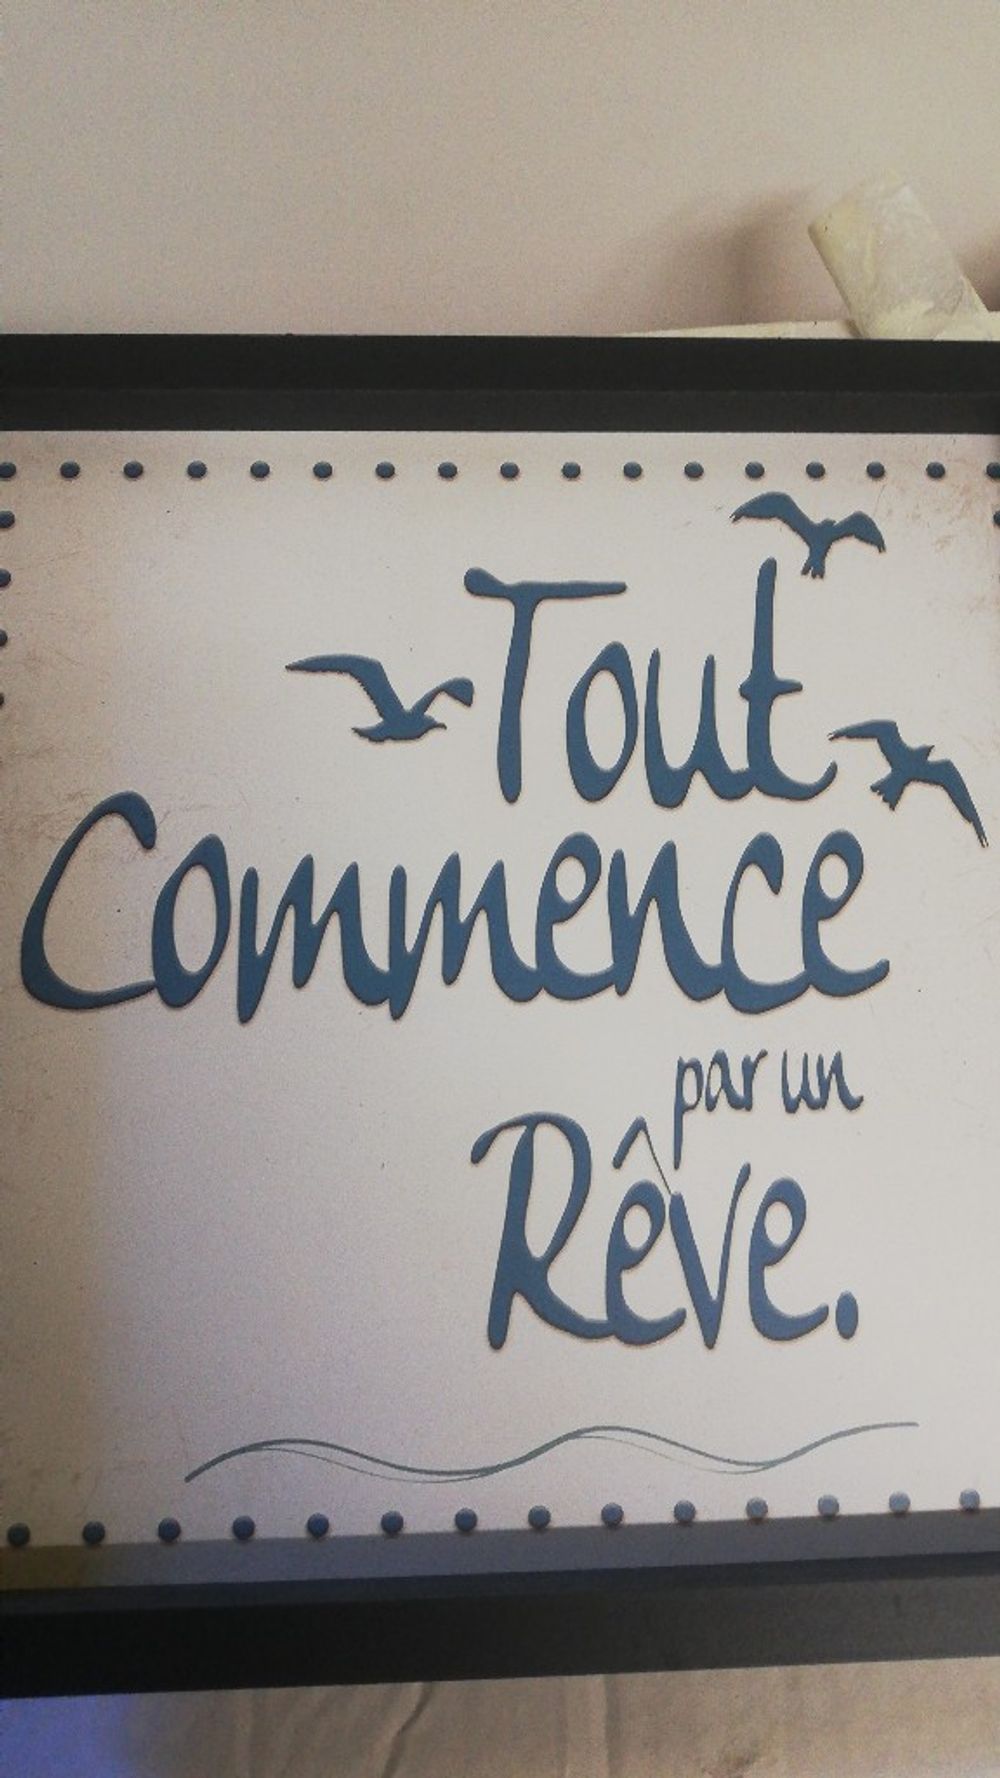 Tout
Commence
par un
Rêve.